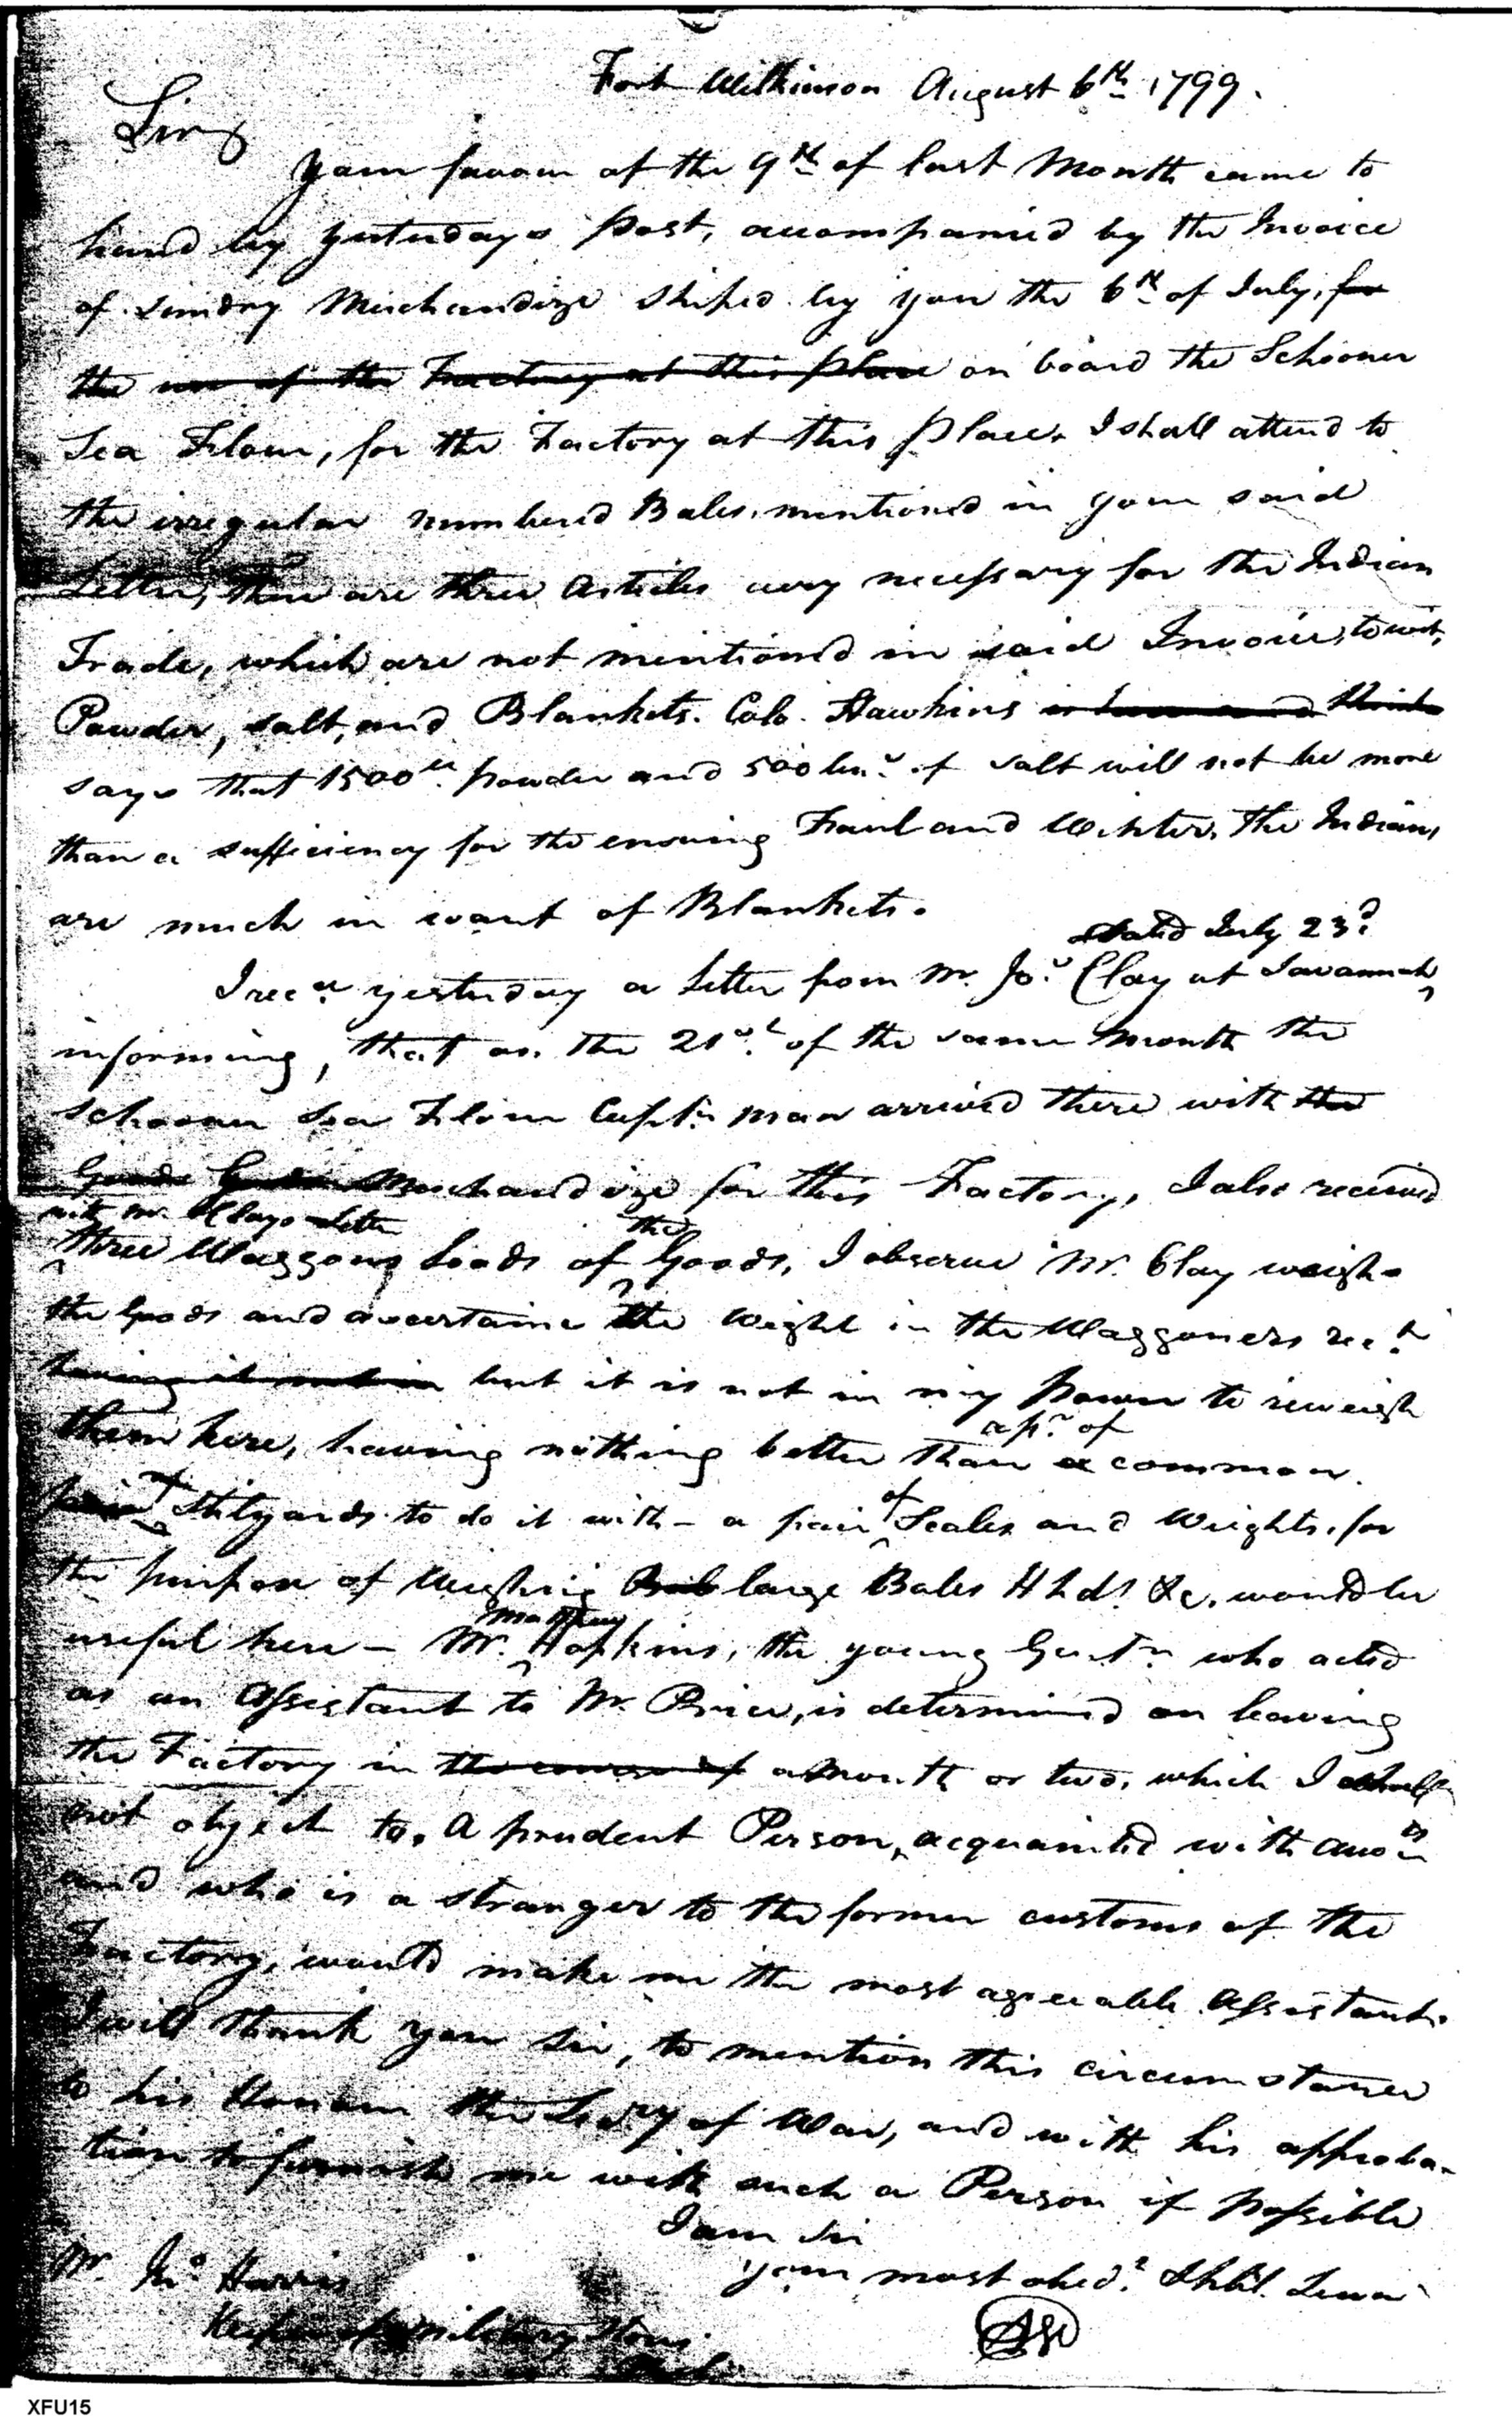 Fort Wilkinson August 6th 1799.
Sir,
Your favour of the 9th of last Month came to
hand by yesterdays Post, accompanied by the Invoice
of sundry Merchandize Shiped by you the 6th of July, for
the use of the Factory at this place on board the Schooner
Sea Flour, for the Factory at this place. I shall attend to
the irregular numbered Bales, mentioned in your said
Letter, There are three Articles very necessary for the Indian
Trade, which are not mentioned in said Invoice, to wit,
Powder, salt, and Blankets. Colo. Hawkins
says that 1500 lb. powder and 500 bus. of salt will not be more
than a sufficiency for the ensuing Faul and Winter, The Indians,
are much in want of Blankets.
dated July 23d
I recd. yesterday a letter from Mr. Jos. Clay at Savannah,
informing, that on the 21st. of the same Month the
schooner Sea Flour Captn. Man arrived there with the
Goods Merchandize for this Factory, I also received
with Mr. Clays Letter
the
three Waggons Loads of Goods, I observe Mr. Clay weighs
the Goods and ascertains the Weight in the Waggoners rect.
but it is not in my Power to reweigh
a pr. of
them here, having nothing better than a common
of
pair Stilyards to do it with - a pair of Scales and Weights, for
the purpose of Weighing large Bales Hhds. &c, would be
Matthew
useful here - Mr. Hopkins, the young Gentn. who acted
as an Assistant to Mr. Price, is determined on leaving
the Factory in the course of a Month or two, which I shall
not object to. A prudent Person, acquainted with Accots
and who is a stranger to the former customs of the
Factory, would make me the most agreeable Assistant.
I will thank you sir, to mention this circumstance
to his Honour the Secry of War, and with his approba-
tion to furnish me with such a Person if possible
I am Sir
your most obedt. Hbl. Serva
Mr. Jno. Harris
Keeper of Military Stores
XFU15